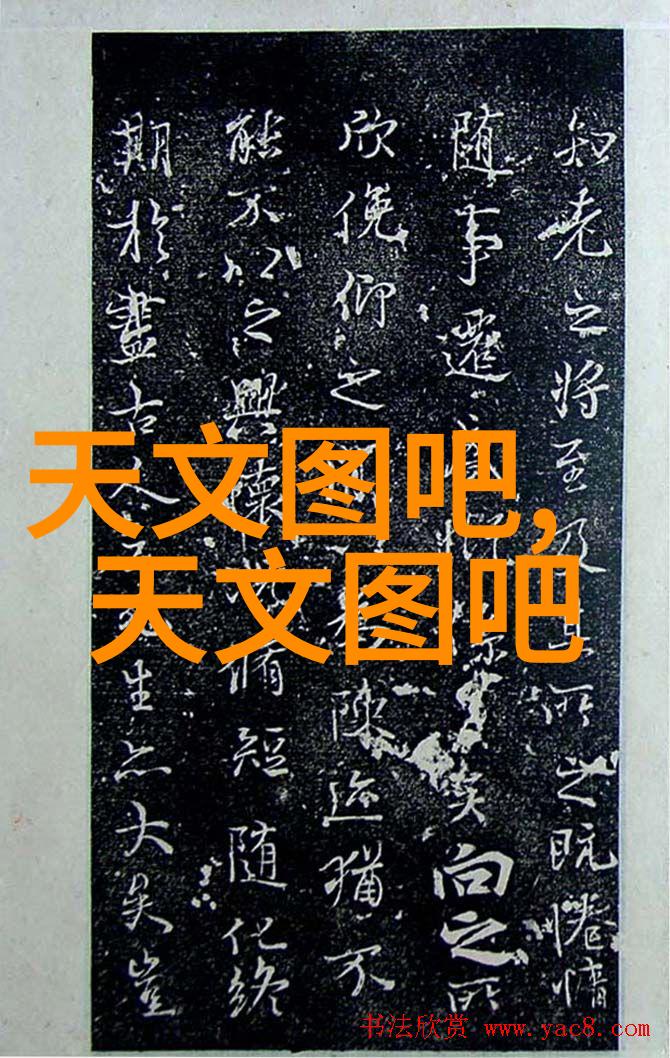 知老之将至及其所之既惓情
随事遷感係之矣向之所
欣俛仰之陳迹猶不
能不以之興懷脩短随化終
期於盡古人生亦大矣豈
天文图吧,
天文图吧
书法欣赏 www.yac8.com